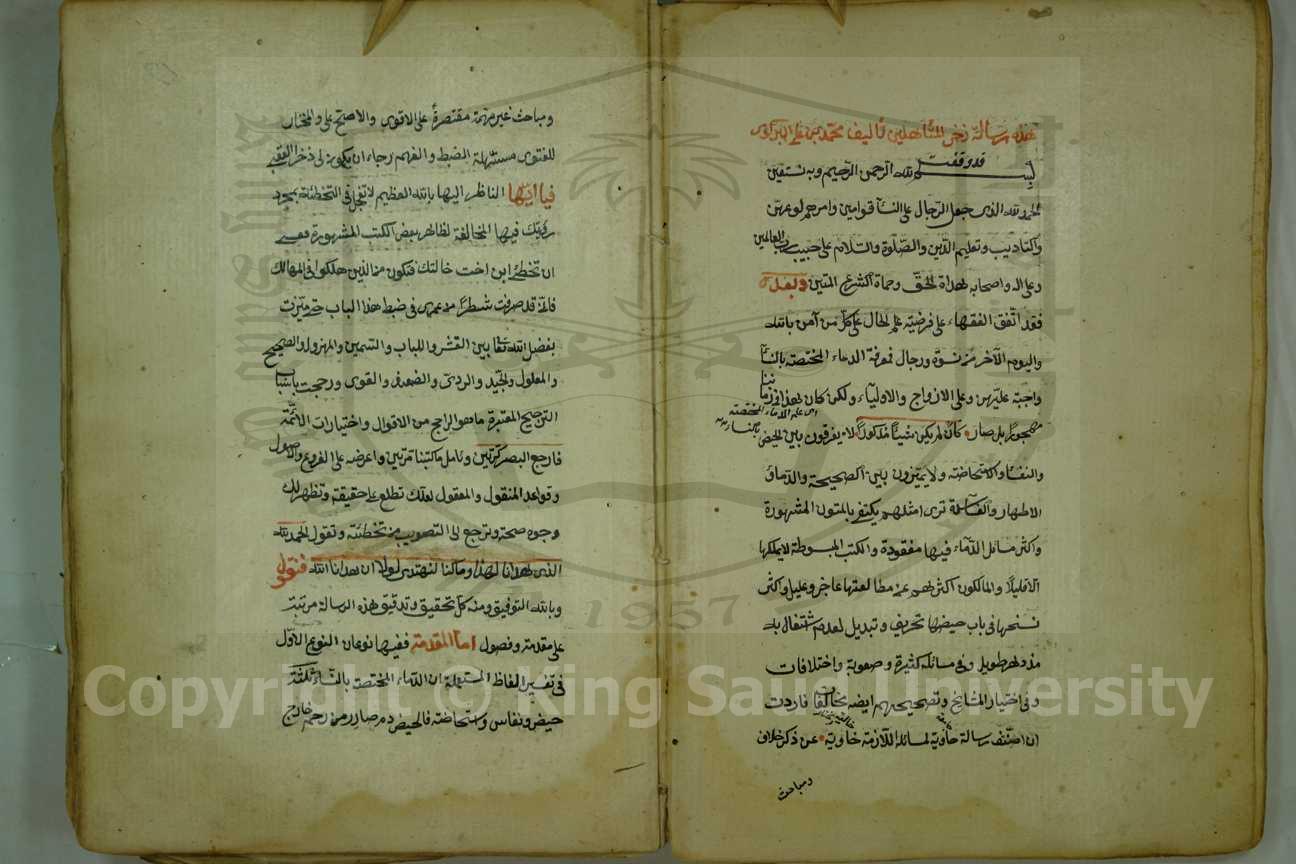 هذه رسالة ذخر المتأهلين تأليف محمد بن علي البركوى
قد وقفت
بسم الله الرحمن الرحيم وبه نستعين
الحمد لله الذى جعل الرجال على النسآ قوامين وامرهم لوعظهن
والتاديب وتعليم الدين والصلوة والسلام على حبيب رب العالمين
وعلى اله واصحابه هداة الحق وحماة الشرع المتين وبعد
فقد اتفق الفقهاء على فرضية علم الحال على كل من آمن بالله
واليوم الآخر من نسوة ورجال فمعرفة الدماء المختصة بالنسآ
واجبة عليهن وعلى الازواج والاوليآء ولكن كان هذا فى زماننا
اى علم الدماء المختصة بالنساء
مهجورا بل صار كان لم يكن شيئا مذكورا لا يفرقون بين الحيض
والنفاس والاستحاضة ولا يميزون بين الصحيحة والدمآء
الاطهار والفاسدة ترى امثلهم يكتفى بالمتون المشهورة
واكثر مسائل الدمآء فيها مفقودة والكتب المبسوطة لا يملكها
الا قليلا والمالكون اكثرهم عن مطالعتها عاجز وعليل واكثر
نسخها فى باب حيضها تحريف وتبديل لعدم الاشتغال به
مذ دهر طويل وفى مسائله كثيرة وصعوبة واختلافات
وفى اختيار المشايخ وتصحيحهم ايضه مخالفات فاردت
ان اصنف رسالة حاوية لمسائله اللازمة خاوية عن ذكر خلاف
ومباحث
ومباحث غير مهمة مقتصرة على الاقوى والاصح على والمختار
للفتوى مستسهلة الضبط والفهم رجاء ان يكون لى ذخرا فى العقبى
فيا ايها الناظر اليها بالله العظيم لا تعجل فى التخطئة بمجرد
رؤيتك فيها المخالفة لظاهر بعض الكتب المشهورة فعسى
ان تخطئ ابن اخت خالتك فتكون من الذين هلكوا فى المهالك
فانى قد صرفت شطرا من عمرى فى ضبط هذا الباب حتى ميزت
بفضل الله تعا بين القشر واللباب والسمين والمهزول والصحيح
والمعلول والجيد والردئ والضعيف والقوى ورجحت باسباب
الترجيح المعتبرة ما هو الراجح من الاقوال واختيارات الائمة
فارجع البصر كرتين وتامل ما كتبنا مرتين واعرضه على الفروع والاصول
وقواعد المنقول والمعقول لعلك تطلع على حقيقته وتظهر لك
وجوه صحته وترجع الى التصويب من تخطئته وتقول الحمد لله
الذى هدانا لهذا وما كنا لنهتدى لولا ان هدانا الله فنقول
وبالله التوفيق ومنه كل تحقيق وتدقيق هذه الرسالة مرتبة
على مقدمة وفصول اما المقدمة ففيها نوعان النوع الاول
فى تفسير الفاظ المستعملة ان الدماء المختصة بالنسآء ثلثة
حيض ونفاس واستحاضة فالحيض دم صادر من رحم خارج
Copyright © King Saud University
1957